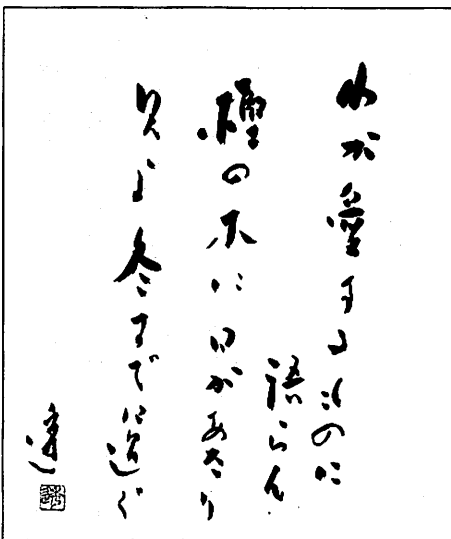 わが愛するものに
語らん
橿の木に日があたり
見よ冬すでに過ぐ
達